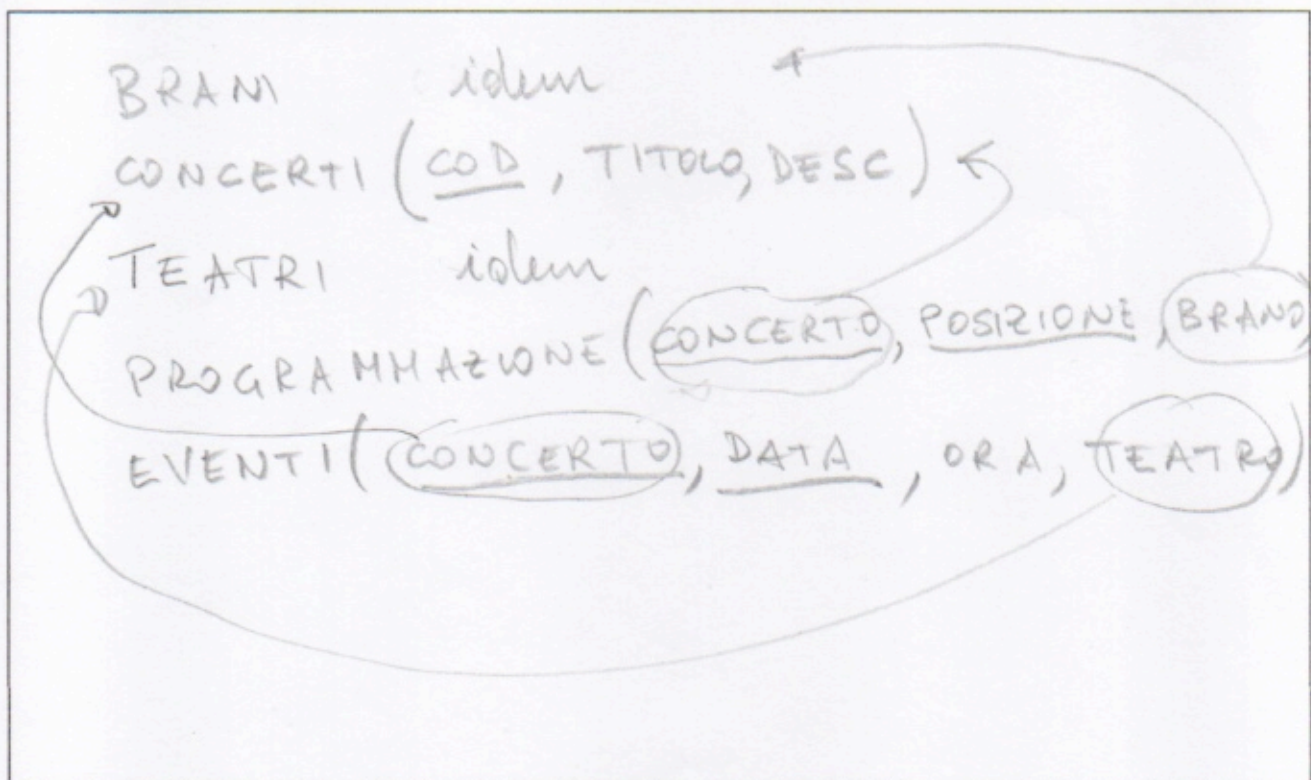 BRANI idem
CONCERTI (COD, TITOLO, DESC)
TEATRI idem
PROGRAMMAZIONE (CONCERTO, POSIZIONE, BRANO)
EVENTI (CONCERTO, DATA, ORA, TEATRO)